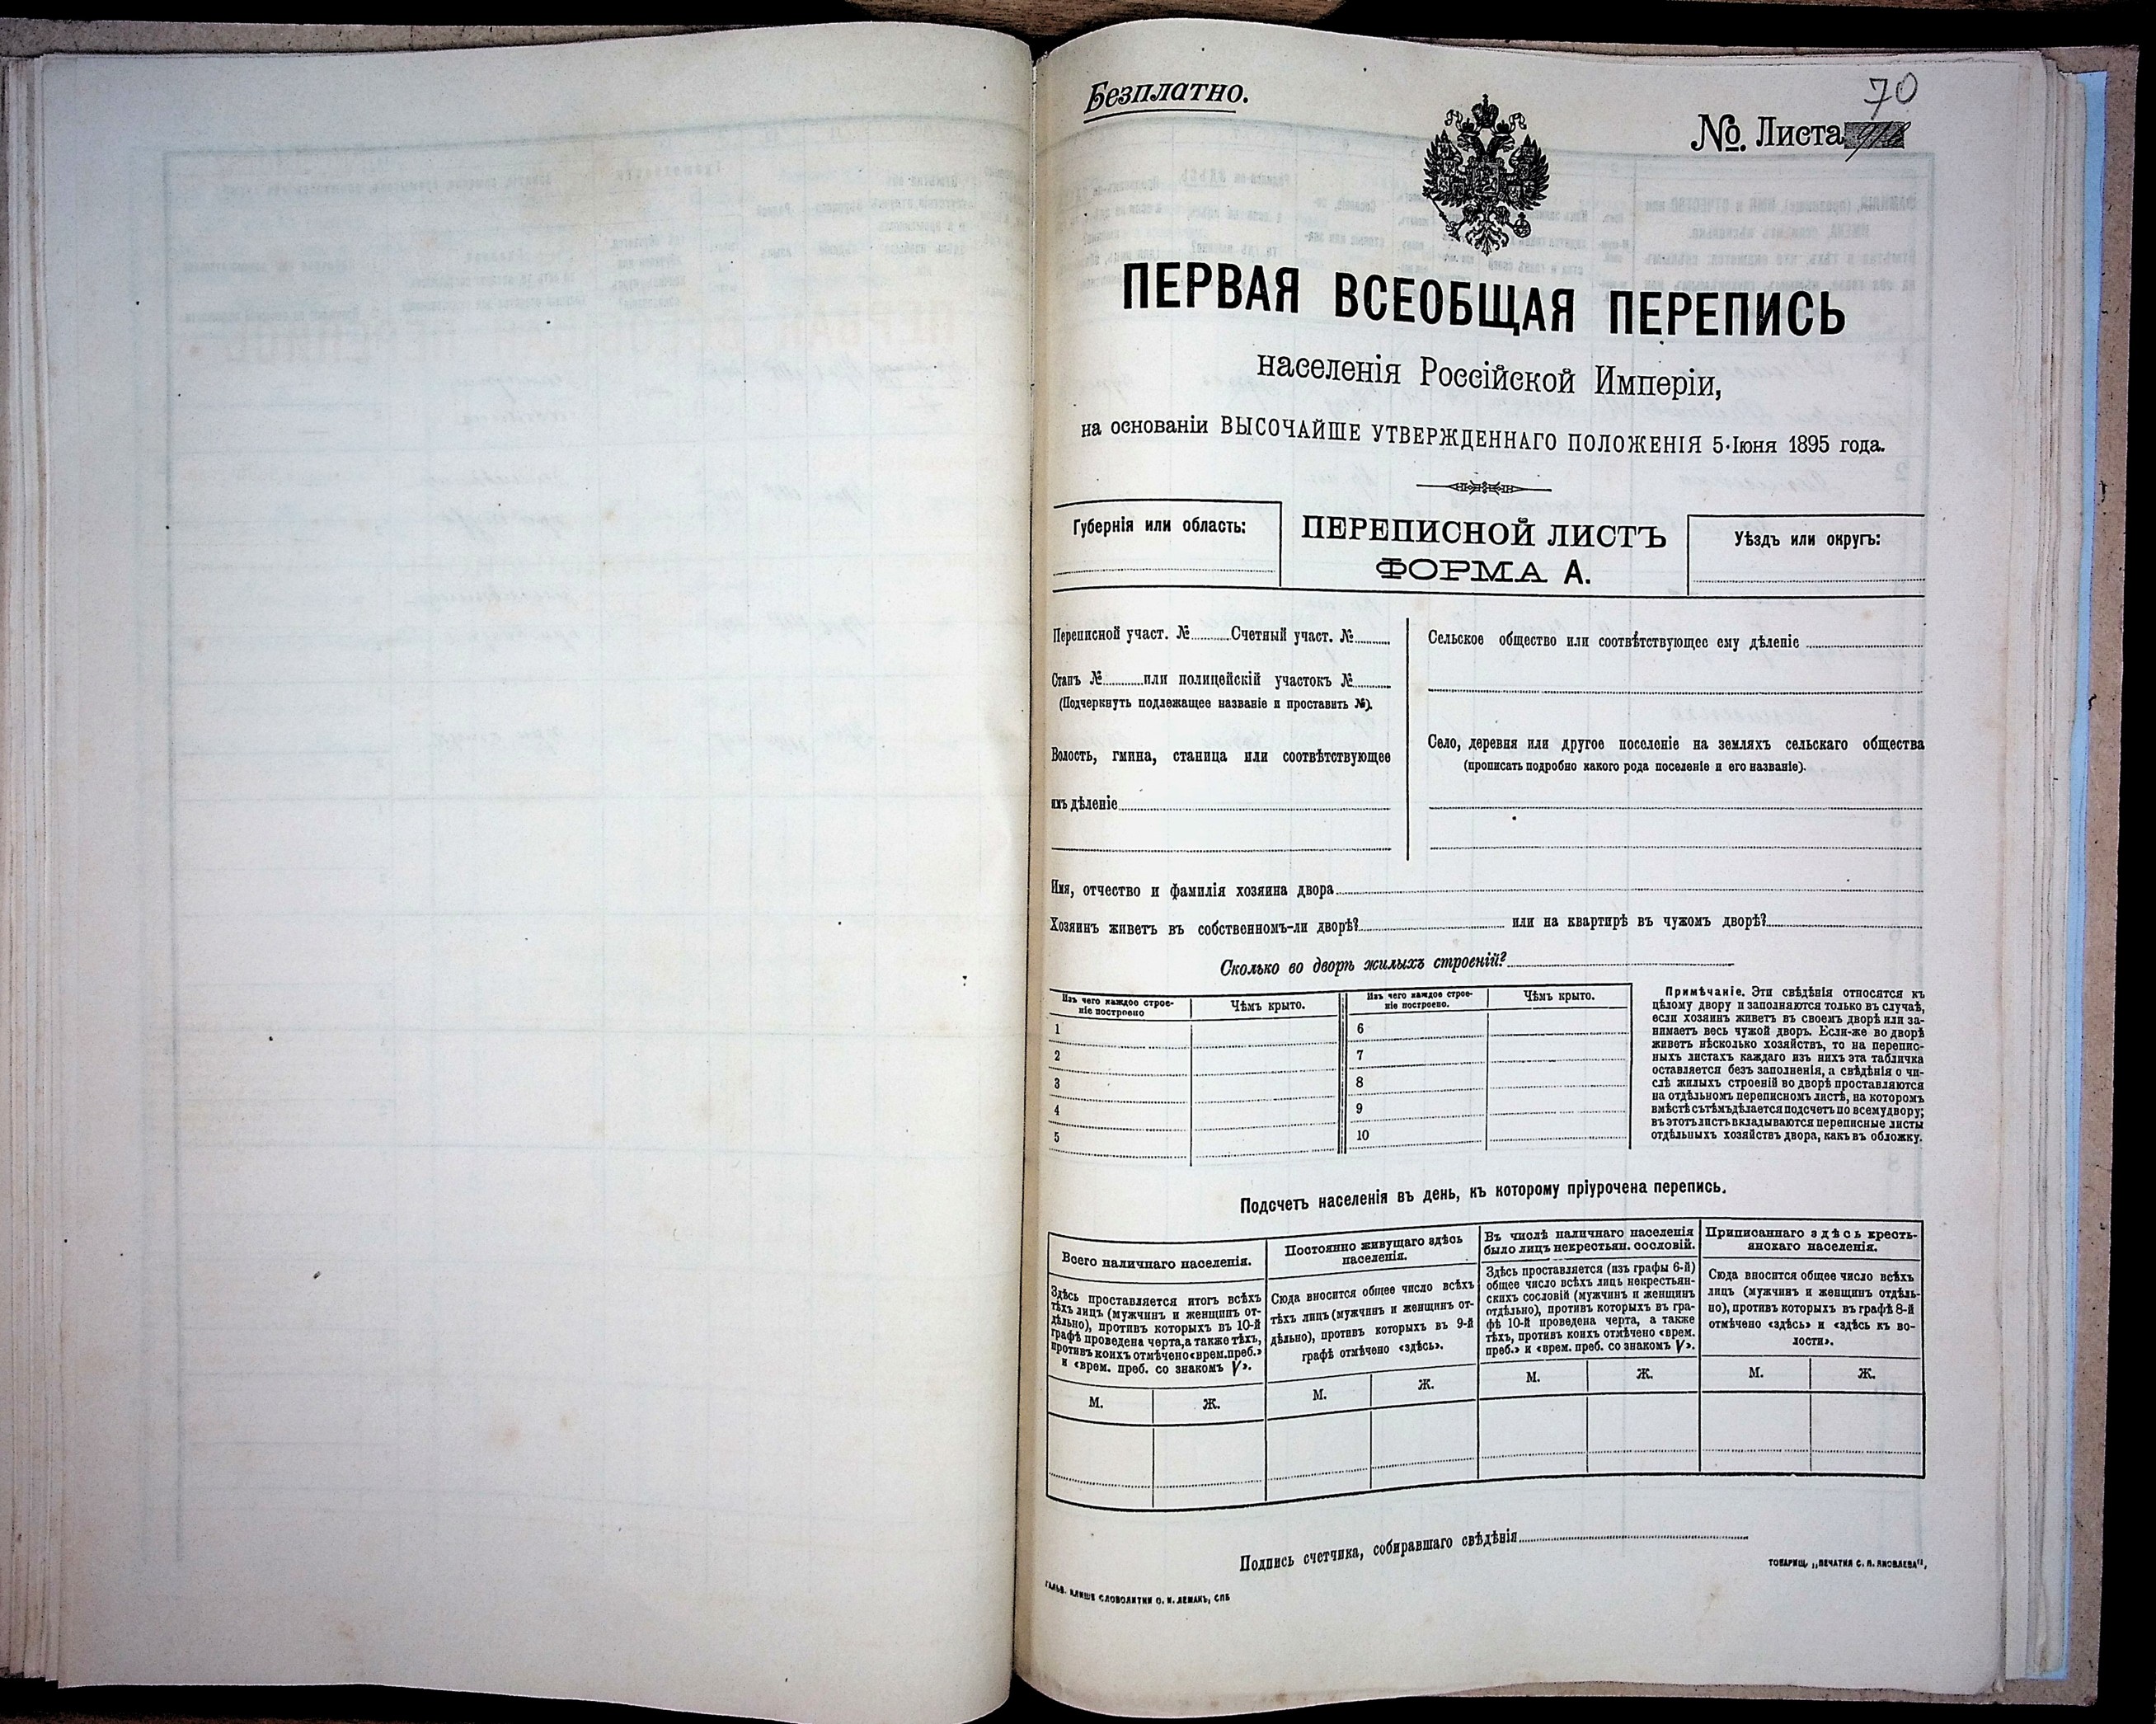 Безплатно.
70
№. Листа
ПЕРВАЯ ВСЕОБЩАЯ ПЕРЕПИСЬ
населенія Россійской Имперіи,
на основаніи ВЫСОЧАЙШЕ УТВЕРЖДЕННАГО ПОЛОЖЕНІЯ 5 Іюня 1895 года.
Губернія или область:
ПЕРЕПИСНОЙ ЛИСТЪ
ФОРМА А.
Уѣздъ или округъ:
Переписной участ. № Счетный участ. №
Станъ № или полицейскій участокъ №
(Подчеркнуть подлежащее названіе и проставить №).
Волость, гмина, станица или соотвѣтствующее
имъ дѣленіе
Сельское общество или соотвѣтствующее ему дѣленіе
Село, деревня или другое поселеніе на земляхъ сельскаго общества
(прописать подробно какого рода поселеніе и его названіе).
Имя, отчество и фамилія хозяина двора
Хозяинъ живетъ въ собственномъ-ли дворѣ? или на квартирѣ въ чужомъ дворѣ?
Сколько во дворѣ жилыхъ строеній?
Изъ чего каждое строе-
ніе построено
Чѣмъ крыто.
Изъ чего каждое строе-
ніе построено.
Чѣмъ крыто.
1
2
3
4
5
6
7
8
9
10
Примѣчаніе. Эти свѣдѣнія относятся къ
цѣлому двору и заполняются только въ случаѣ,
если хозяинъ живетъ въ своемъ дворѣ или за-
нимаетъ весь чужой дворъ. Если-же во дворѣ
живетъ нѣсколько хозяйствъ, то на перепис-
ныхъ листахъ каждаго изъ нихъ эта табличка
оставляется безъ заполненія, а свѣдѣнія о чи-
слѣ жилыхъ строеній во дворѣ проставляются
на отдѣльномъ переписномъ листѣ, на которомъ
вмѣстѣ съ тѣмъ дѣлается подсчетъ по всему двору;
въ этотъ листъ вкладываются переписные листы
отдѣльныхъ хозяйствъ двора, какъ въ обложку.
Подсчетъ населенія въ день, къ которому пріурочена перепись.
Всего наличнаго населенія.
Здѣсь проставляется итогъ всѣхъ
тѣхъ лицъ (мужчинъ и женщинъ от-
дѣльно), противъ которыхъ въ 10-й
графѣ проведена черта, а также тѣхъ,
противъ коихъ отмѣчено «врем. преб.»
и «врем. преб. со знакомъ V».
М.
Ж.
Постоянно живущаго здѣсь
населенія.
Сюда вносится общее число всѣхъ
тѣхъ лицъ (мужчинъ и женщинъ от-
дѣльно), противъ которыхъ въ 9-й
графѣ отмѣчено «здѣсь».
М.
Ж.
Въ числѣ наличнаго населенія
было лицъ некрестьян. сословій.
Здѣсь проставляется (изъ графы 6-й)
общее число всѣхъ лицъ некрестьян-
скихъ сословій (мужчинъ и женщинъ
отдѣльно), противъ которыхъ въ гра-
фѣ 10-й проведена черта, а также
тѣхъ, противъ коихъ отмѣчено «врем.
преб.» и «врем. преб. со знакомъ V».
М.
Ж.
Приписаннаго здѣсь кресть-
янскаго населенія.
Сюда вносится общее число всѣхъ
лицъ (мужчинъ и женщинъ отдѣль-
но), противъ которыхъ въ графѣ 8-й
отмѣчено «здѣсь» и «здѣсь къ во-
лости».
М.
Ж.
Подпись счетчика, собиравшаго свѣдѣнія
ТОВАРИЩ. „ПЕЧАТНЯ С. П. ЯКОВЛЕВА“,
ГАЛЬВ. КЛИШЕ СЛОВОЛИТНИ О. И. ЛЕМАНЪ, СПБ